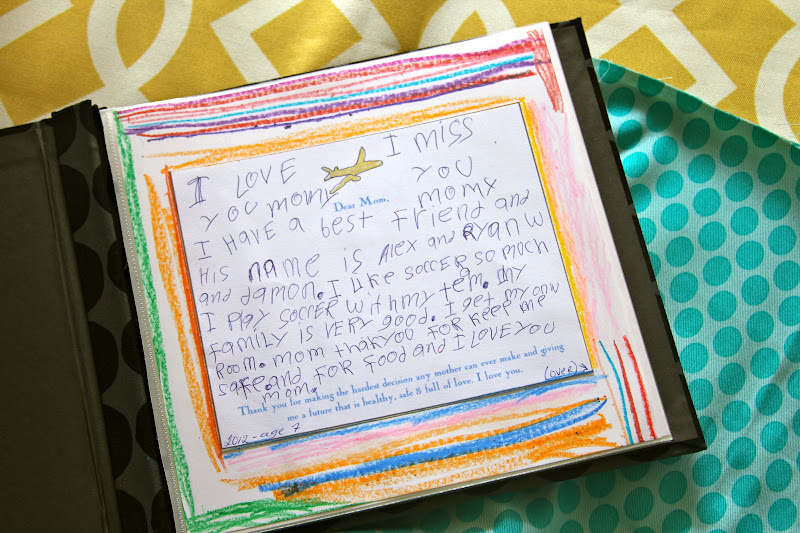 I LOVE I MISS
YOU MOMY YOU
Dear Mom,
MOMY
I HAVE a best Friend and
His name is Alex and Ryan W
and damon. I Like SOCCER SO MUCH
I PLAY SOCCER WITH MY TEAM. MY
FAMILY IS VERY GOOD. I GET MY OWN
ROOM. MOM THAKYOU FOR KEEP ME
SAFE. AND FOR FOOD AND I LOVE YOU
MOM.
Thank you for making the hardest decision any mother can ever make and giving
me a future that is healthy, safe & full of love. I love you.
2012 - age 7 (over)